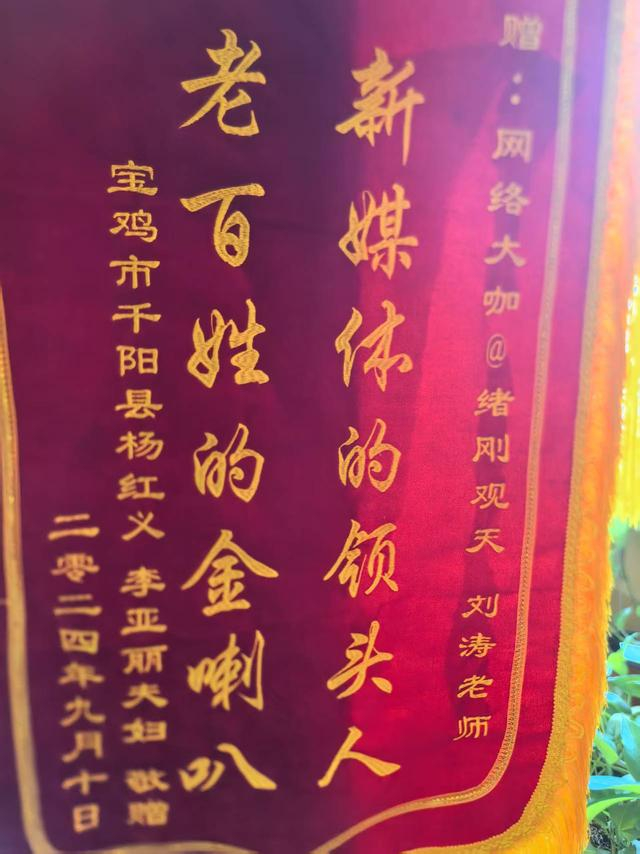 赠：网络大咖@绪刚观天 刘涛老师
新媒体的领头人
老百姓的金喇叭
宝鸡市千阳县杨红义 李亚丽夫妇 敬赠
二零二四年九月十日